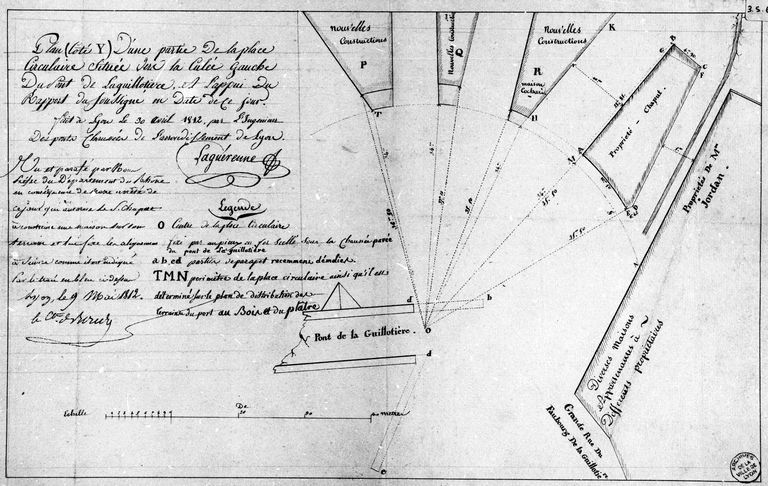 Plan (Coté Y) D'une partie De la place
Circulaire Située Sur la Culée Gauche
Du Pont de Laguillotière, et à l'appui Du
Rapport du Soussigné en Date de Ce Jour.
fait à Lyon Le 30 avril 1812, par l'Ingénieur
Des ponts Chaussées De l'arrondissement de Lyon.
Laguérenne
Vu et paraphé par Nous
Préfet du Département du Rhône
en conséquence de notre arrêté de
ce jour qui autorise le S. Chaput
à construire une maison sur son
terrein et lui fixe les alignemens
à suivre comme il est indiqué
par le trait en bleu ci-dessus
Lyon, le 9 Mai 1812.
Légende
O Centre de la place Circulaire
fixé par un pieu en fer scellé sous la Chaussée pavée
du pont de La Guillotière
a b, cd parties de parapet recemment démolies.
TMN perimètre de la place circulaire ainsi qu'il est
déterminé sur le plan de distribution des
terrains du port au Bois et du plâtre
Pont de la Guillotière.
d
b
O
d
Echelle
De
50
mètres
Nouvelles
Constructions
P
T
Nouvelles Constructions
Q
Nouvelles
Constructions
R
maison
H
K
B
C
F
G
M
A
S
D
Propriété - Chaput
Propriété De Mr
Jordan
Diverses Maisons
Appartenantes à
Différents propriétaires
Grande Rue Du
Faubourg De la Guillotière
3.S.6
ARCHIVES
DE LA
VILLE DE
LYON